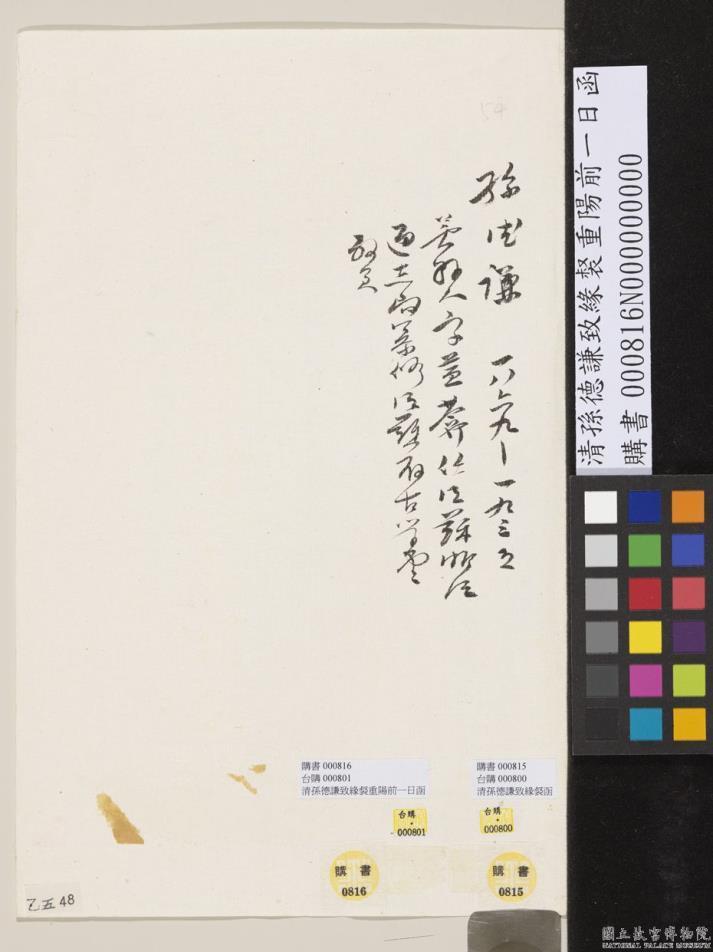 清孫德謙致緣裻重陽前一日函
購書 000816N000000000
孫德謙 一八六九—一九三五
吳縣人字益葊任江蘇浙江
通志局纂修江蘇存古學堂
教員
購書 000816
台購 000801
清孫德謙致緣裻重陽前一日函
購書 000815
台購 000800
清孫德謙致緣裻函
台購
000801
台購
000800
購書
0816
購書
0815
乙五48
國立故宮博物院
NATIONAL PALACE MUSEUM